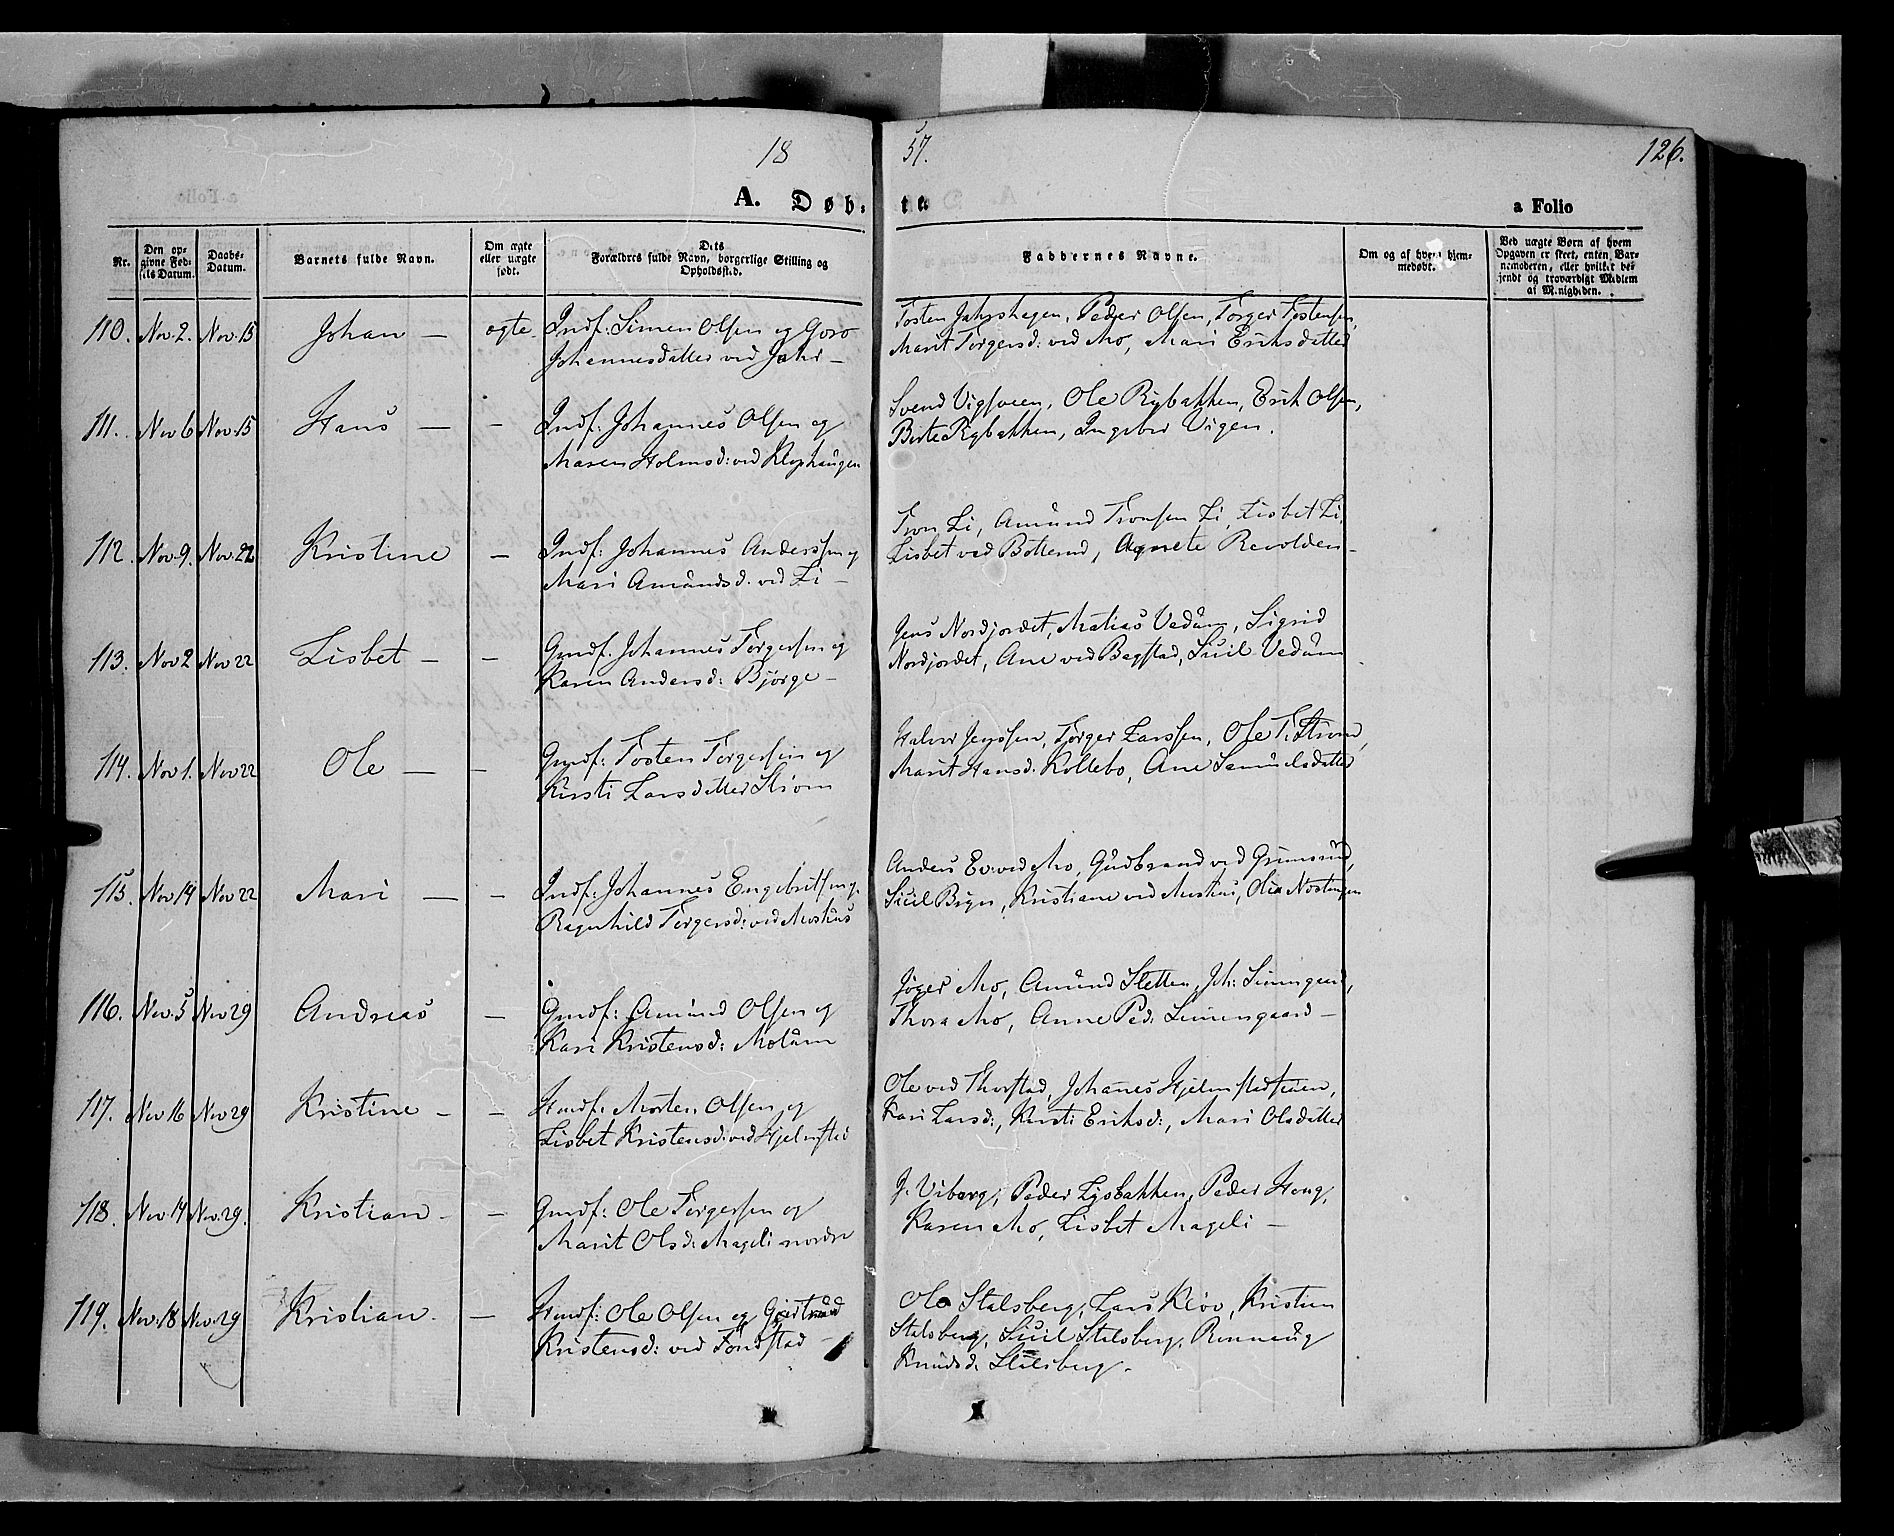 18 57. 126.
A. Døb- te. a Folio
Nr. Den opgivne Fødsels Datum. Daabs-Datum. Barnets fulde Navn. Om ægte eller uægte født. Dets Forældres fulde Navn, borgerlige Stilling og Opholdssted. Faddernes Navne. Om og af hvem hjemmedøbt. Ved uægte Børn af hvem Opgaven er skeet, enten Barnemoderen, eller hvilket bekjendt og troværdigt Medlem af Menigheden.
110. Nov. 2. Nov. 15 Johan — ægte Indf: Simen Olsen og Goro Tosten Jahrshagen, Peder Olsen, Torger Tostensen,
Johannesdatter ved Jahr — Marit Torgersd: ved Mo, Mari Eriksdatter
111. Nov 6 Nov. 15 Hans — - Indf: Johannes Olsen og Svend Vigsveen, Ole Rybakken, Erik Olsen,
Maren Holmsd: ved Klophaugen Berte Rybakken, Ingebor Vigen.
112. Nov. 9. Nov. 22 Kristine — Indf: Johannes Anderssen og Tron Li, Amund Tronsen Li, Lisbet Li,
Mari Amundsd. ved Li — Lisbet ved Botterud, Agnete Revolden —
113. Nov 2 Nov 22 Lisbet — - Gmdf. Johannes Torgersen og Jens Nordjordet, Matias Vedum, Sigrid
Karen Andersd: Bjørge — Nordjordet, Ane ved Bagstad, Siuil Vedum
114. Nov 1. Nov 22 Ole — - Gmdf: Tosten Torgersen og Halvor Jenssen, Torger Larssen, Ole T. Strøm,
Kirsti Larsdatter Strøm Marit Hansd: Kollebo, Ane Samuelsdatter
115. Nov 14 Nov 22 Mari — - Indf: Johannes Engebritsen og Anders Ev: ved Mo, Gudbrand ved Grimsrud,
Ragnhild Torgersd: ved Moshus Siuil Bryn, Kristiane ved Moshus, Olia Nostingen
116. Nov. 5 Nov 29 Andreas — Gmdf: Amund Olsen og Jøger Mo, Amund Sletten, Joh: Simengaard,
Kari Kristensd: Molum Thora Mo, Anne Ped: Simengaard —
117. Nov 16 Nov. 29 Kristine - - Husmf: Morten Olsen og Ole ved Thorstad, Johanes Hjelmstadstuen,
Lisbet Kristensd: ved Hjelmstad Kari Larsd:, Kirsti Eriksd:, Mari Olsdatter
118. Nov 14 Nov. 29. Kristian - - Gmdf: Ole Torgersen og J. Viborg, Peder Lysbakken, Peder Haug,
Marit Olsd: Mageli nordre Karen Mo, Lisbet Mageli —
119. Nov. 18 Nov. 29 Kristian. — Husmf: Ole Olsen og Gjertrud Ole Stalsberg, Lars Kløv, Kristian
Kristensd: ved Fondstad — Stalsberg, Siuil Stalsberg, Rønnaug
Knudsd: Stalsberg.